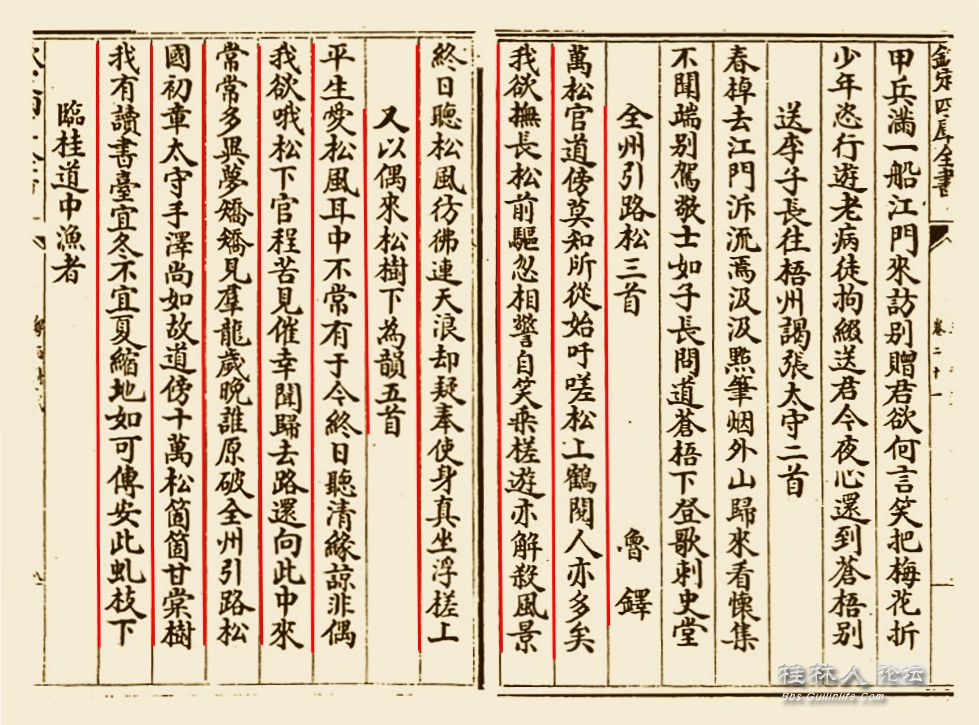 欽定四庫全書
卷二十一
甲兵滿一船江門來訪别贈君欲何言笑把梅花折
少年恣行遊老病徒拘綴送君今夜心還到蒼梧别
送李子長往梧州謁張太守二首
春棹去江門泝流焉汲汲㸃筆烟外山歸來看懷集
不聞端别駕敬士如子長問道蒼梧下登歌刺史堂
全州引路松三首 魯鐸
萬松官道傍莫知所從始吁嗟松上鶴閱人亦多矣
我欲撫長松前驅忽相警自笑乘槎遊亦解殺風景
終日聽松風彷彿連天浪却疑奉使身真坐浮槎上
又以偶來松樹下為韻五首
平生愛松風耳中不常有于今終日聽清緣諒非偶
我欲哦松下官程苦見催幸聞歸去路還向此中來
常常多異夢矯矯見羣龍歲晚誰原破全州引路松
國初章太守手澤尚如故道傍十萬松箇箇甘棠樹
我有讀書臺宜冬不宜夏縮地如可傳安此虬枝下
臨桂道中漁者
桂林人论坛
Bbs.Guilinlife.Com